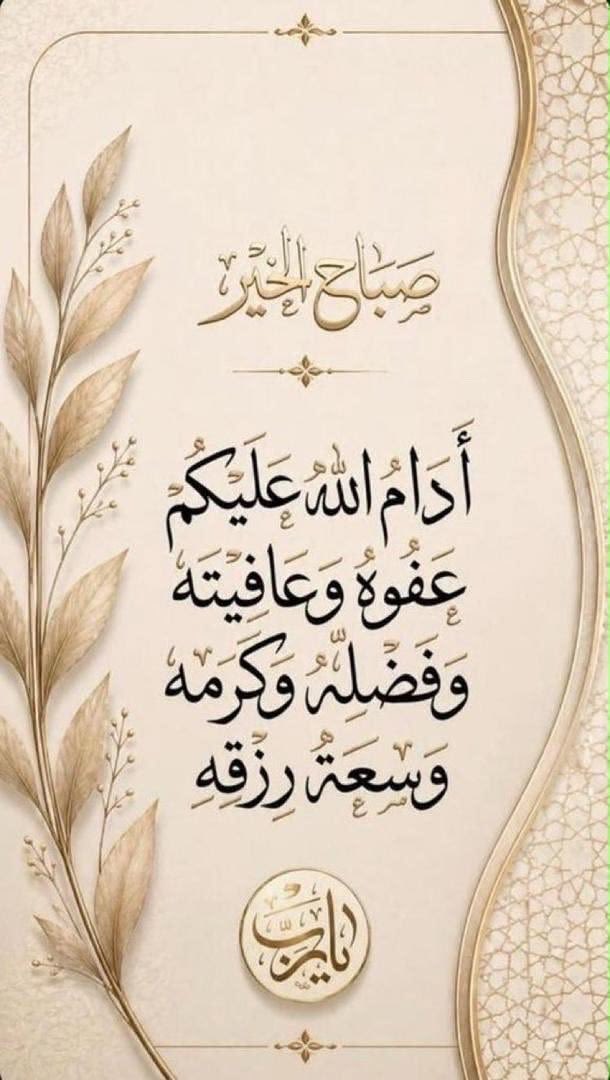 صَبَاح الخَيْر
أَدَامُ اللهُ عَلَيكُمْ
عَفُوهُ وَعَافِيْتَه
وَفَضْلِهُ وَكَرَمَه
وَسعَةُ رِزْقِهِ
يارب